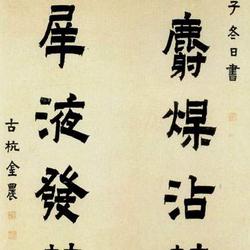 子冬日書
麝煤沾
犀液發
古杭金農